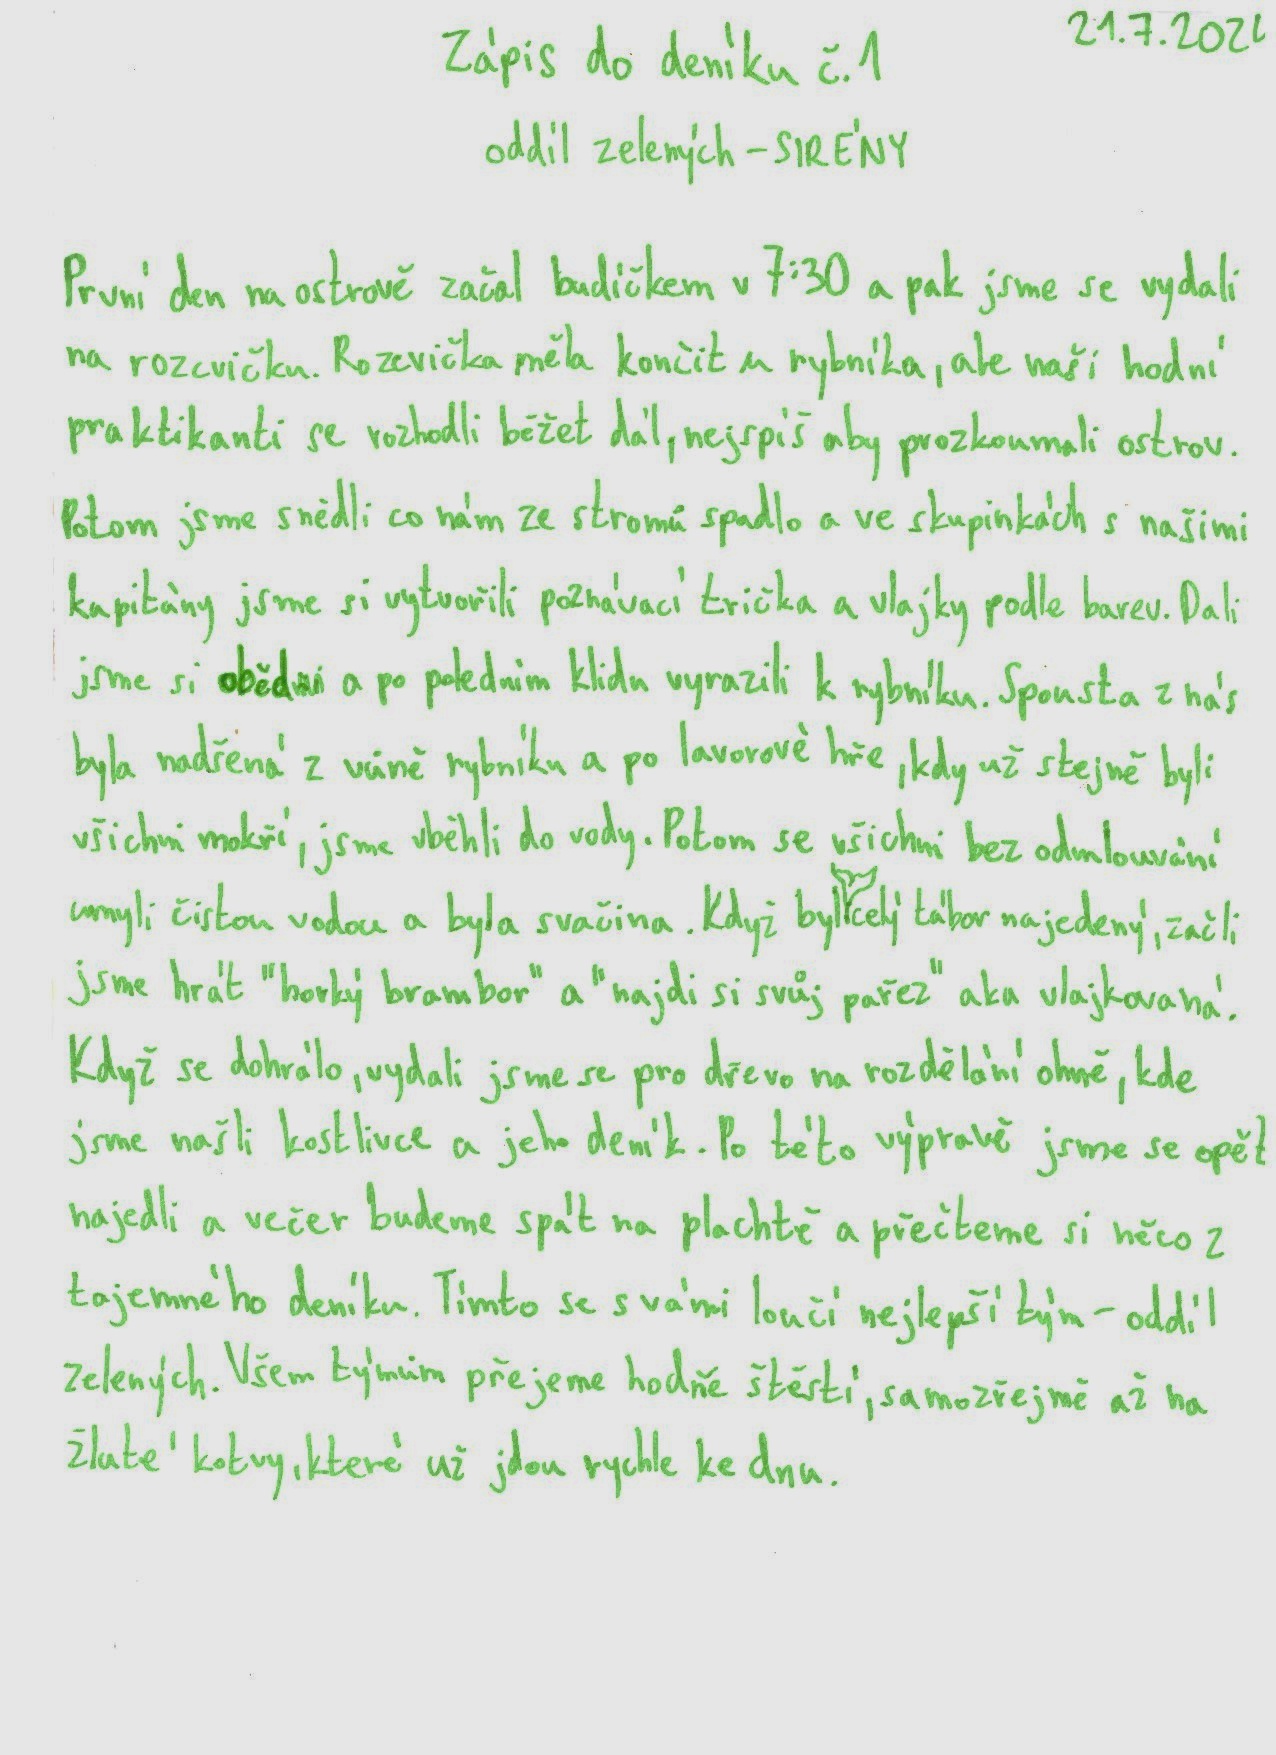 21.7.202
Zápis do deníku č.1
oddíl zelených - SIRÉNY
První den na ostrově začal budíčkem v 7:30 a pak jsme se vydali
na rozcvičku. Rozcvička měla končit u rybníka, ale naší hodní
praktikanti se rozhodli běžet dál, nejspíš aby prozkoumali ostrov.
Potom jsme snědli co nám ze stromů spadlo a ve skupinkách s našimi
kapitány jsme si vytvořili poznávací trička a vlajky podle barev. Dali
jsme si oběd a po poledním klidu vyrazili k rybníku. Spousta z nás
byla nadšená z vůně rybníku a po lavorové hře, kdy už stejně byli
všichni mokří, jsme vběhli do vody. Potom se všichni bez odmlouvání
umyli čistou vodou a byla svačina. Když byl celý tábor najedený, začli
jsme hrát "horký brambor" a "najdi si svůj pařez" aka vlajkovaná.
Když se dohrálo, vydali jsme se pro dřevo na rozdělání ohně, kde
jsme našli kostlivce a jeho deník. Po této výpravě jsme se opět
najedli a večer budeme spát na plachtě a přečteme si něco z
tajemného deníku. Tímto se s vámi loučí nejlepší tým - oddíl
zelených. Všem týmům přejeme hodně štěstí, samozřejmě až na
žluté kotvy, které už jdou rychle ke dnu.